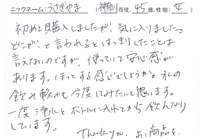 ニックネーム:うさぎやま (神奈川在住、45歳、性別:女)
初めて購入しましたが、気に入りましたっ
どこが?と言われるとはっきりしたことは
言えないのですが、使っていて安心感が
あります。ほっとする感じというか…水の
飲み較べも今度してみたいと思います。
一度浄水とボトルに入れてから飲んだり
しています。
Thank you. お品を。